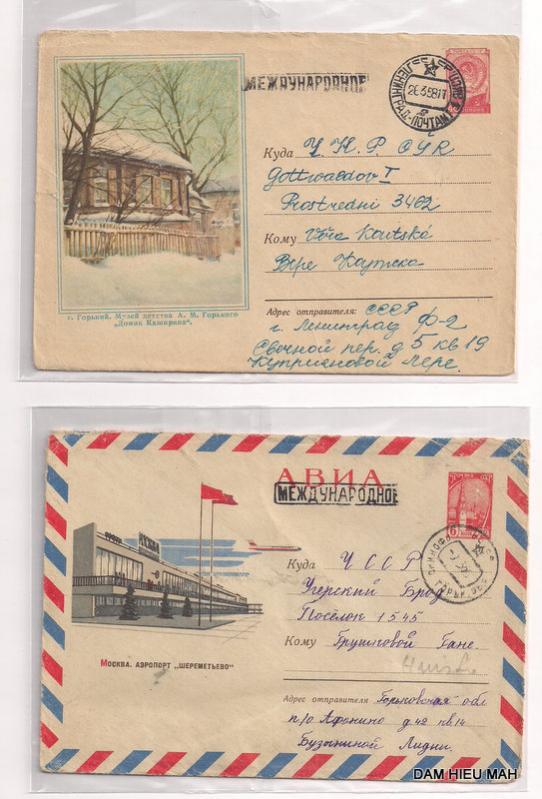 МЕЖДУНАРОДНОЕ
ЛЕНИНГРАД-ПОЧТАМТ
26.3.58.17
Куда
Gottwaldov I
Prostredni 3462
Кому Věra Koutská
Вере
г. Горький. Музей детства А. М. Горького
„Домик Каширина“.
Адрес отправителя: СССР
г. Ленинград Ф-2
Свечной пер. д 5 кв 19
Куприяновой Лере.
АВИА
МЕЖДУНАРОДНОЕ
Куда ЧССР
Угерский Брод
Посёлок 1545
Кому Грушковой Гане.
МОСКВА
МОСКВА. АЭРОПОРТ „ШЕРЕМЕТЬЕВО“
Адрес отправителя Горьковская обл
п/о Афонино д 42 кв 14
Бузыниной Лидии.
DAM HIEU MAH